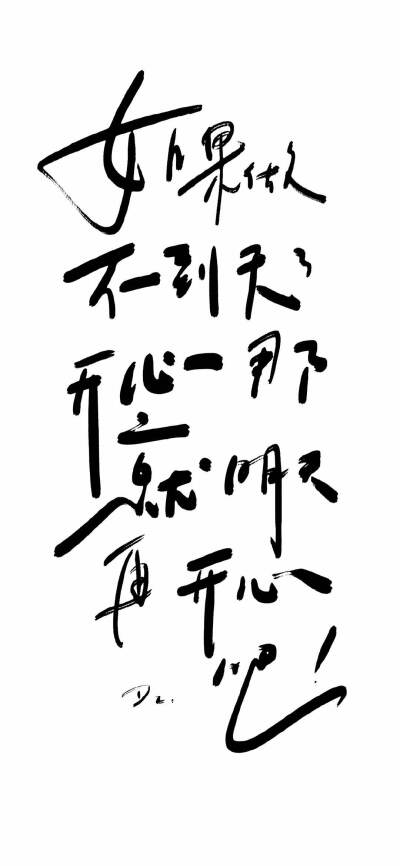 如果做
不到天々
开心那
就明天
再开心
吧！
Dz.